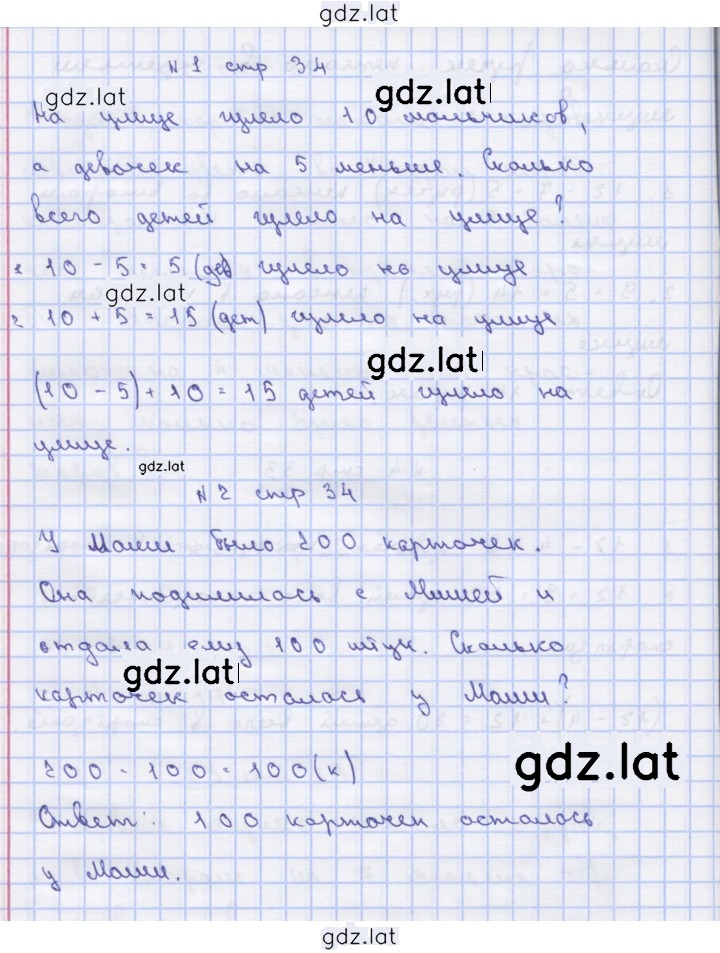 gdz.lat
№ 1 стр 34
gdz.lat
gdz.lat
На улице гуляло 10 мальчиков,
а девочек на 5 меньше. Сколько
всего детей гуляло на улице?
1. 10 - 5 = 5 (дев) гуляло на улице
gdz.lat
2. 10 + 5 = 15 (дет) гуляло на улице
gdz.lat
(10 - 5) + 10 = 15 детей гуляло на
улице.
gdz.lat
№ 2 стр 34
У Маши было 200 карточек.
Она поделилась с Мишей и
отдала ему 100 штук. Сколько
gdz.lat
карточек осталось у Маши?
200 - 100 = 100 (к)
gdz.lat
Ответ: 100 карточек осталось
у Маши.
gdz.lat